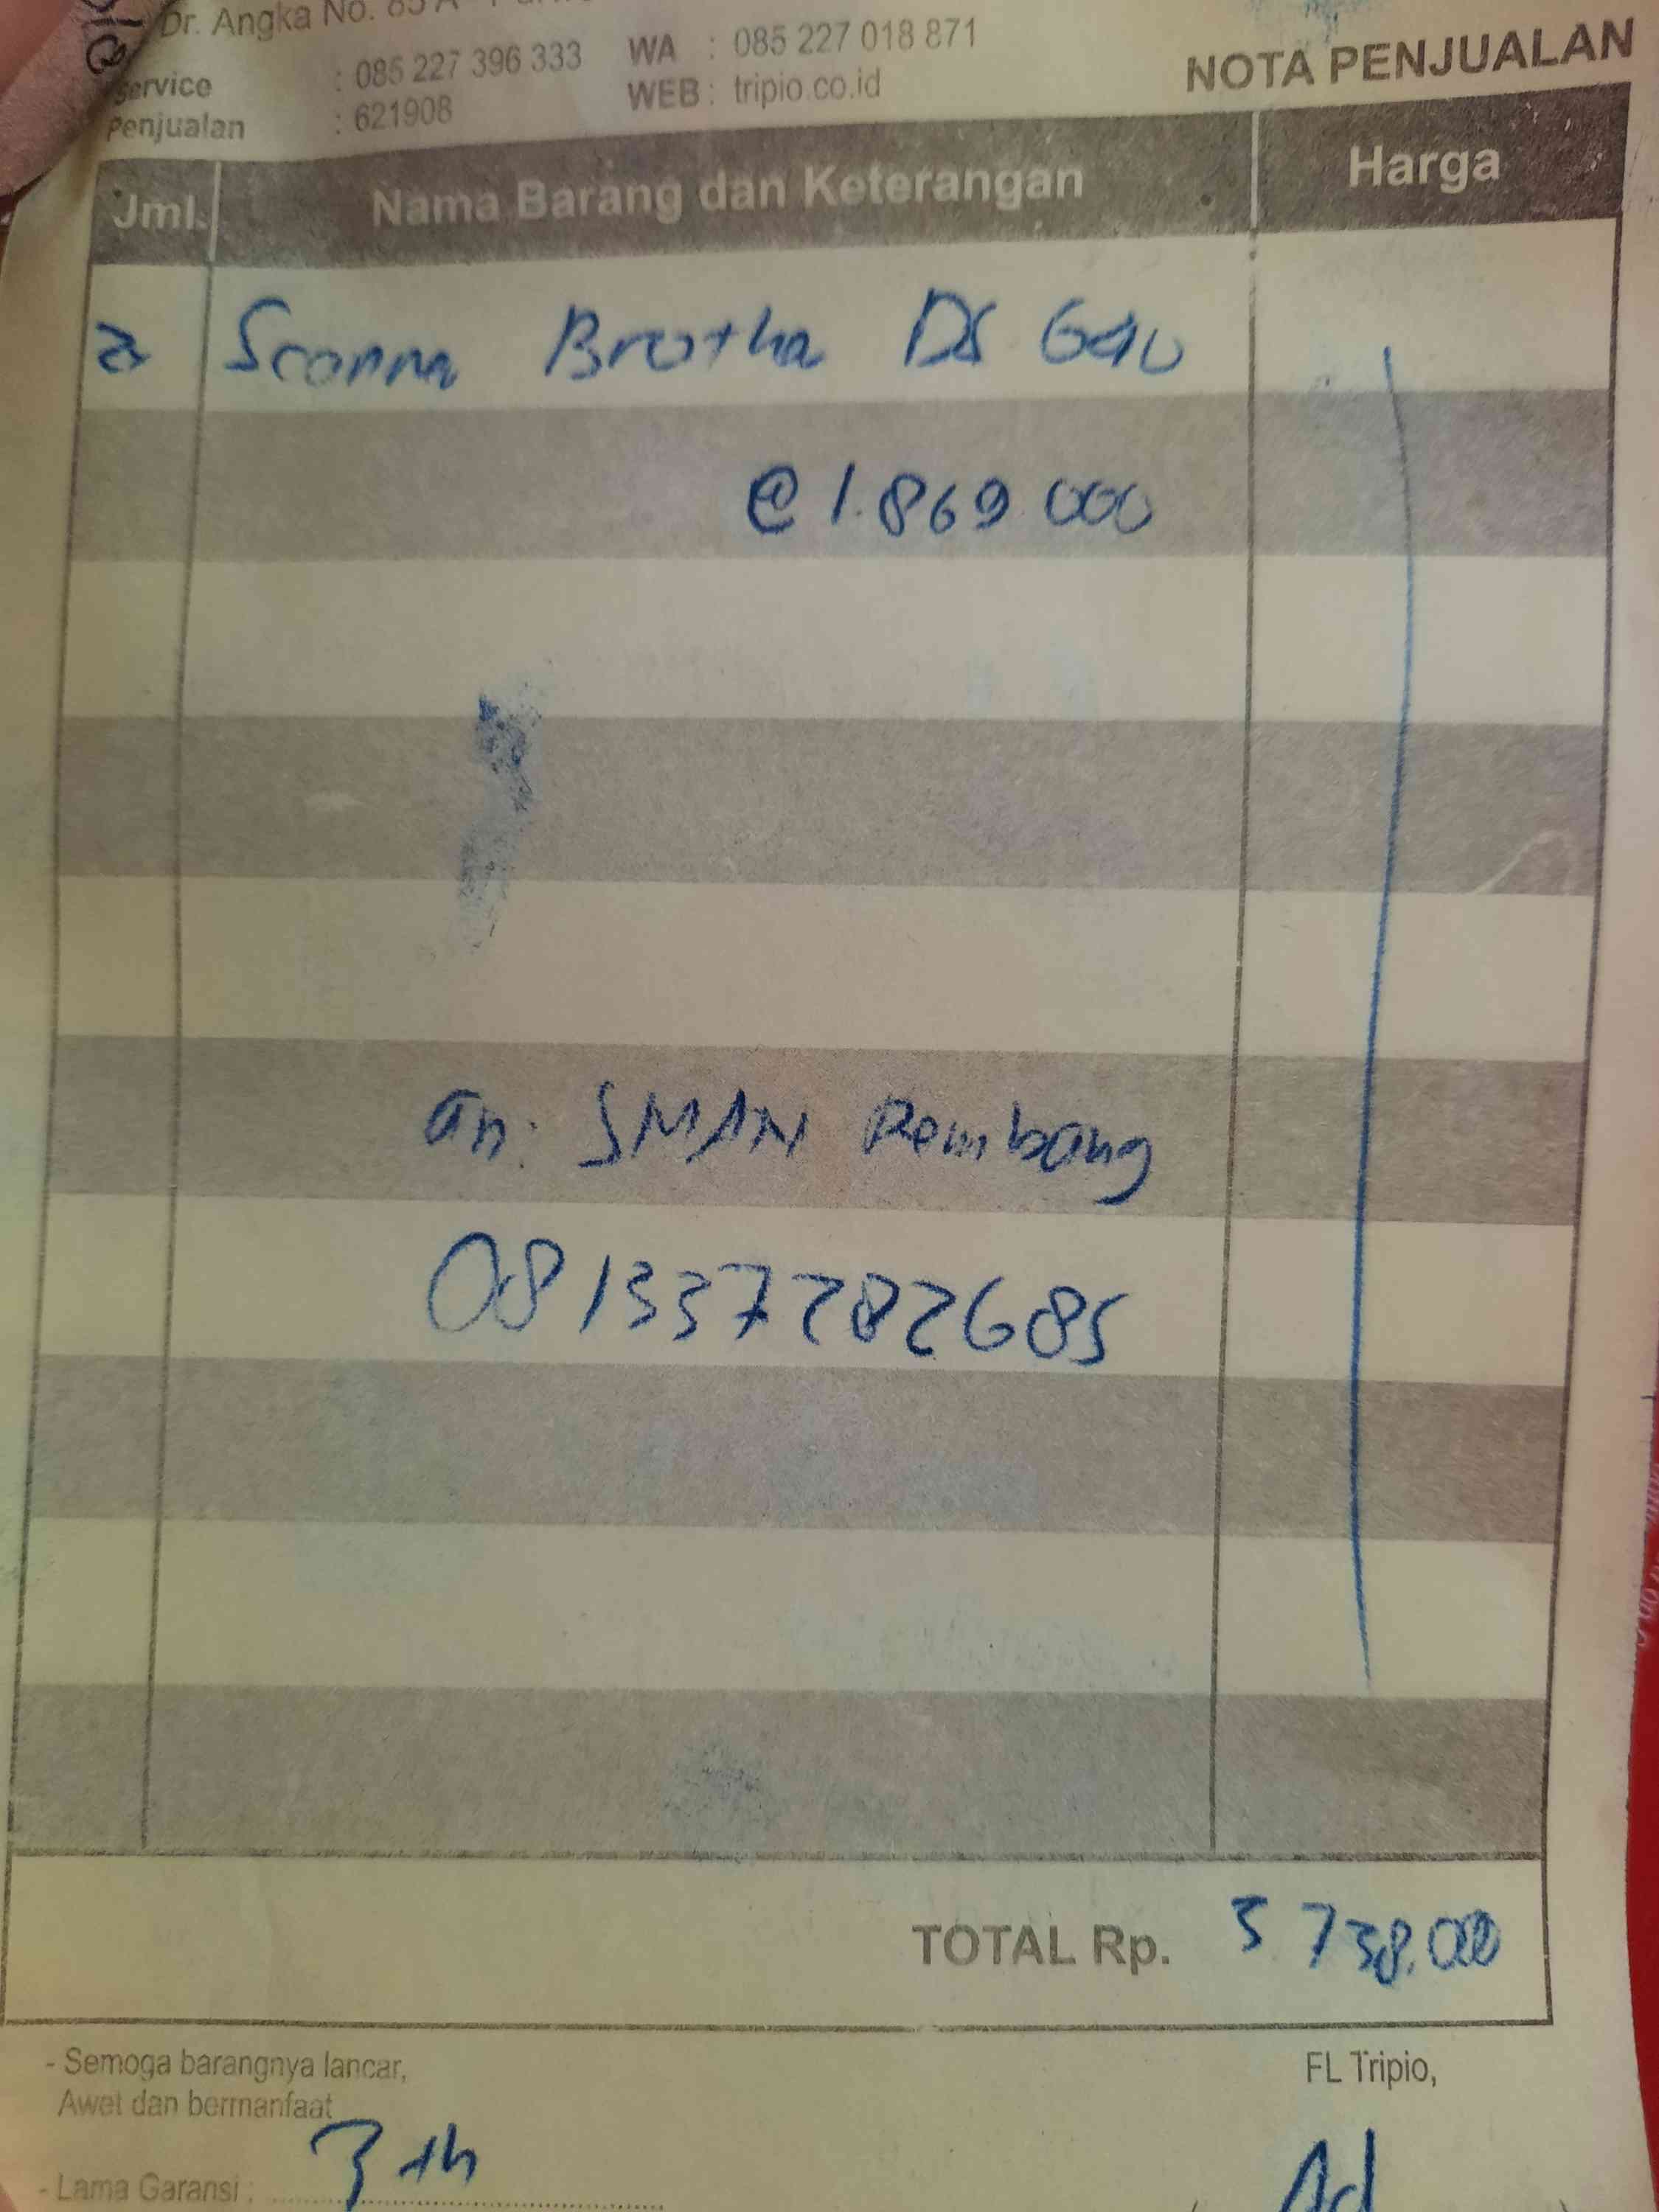 Dr. Angka No. 85 A
Service : 085 227 396 333 WA : 085 227 018 871
Penjualan : 621908 WEB : tripio.co.id
NOTA PENJUALAN
Jml. Nama Barang dan Keterangan Harga
2 Scanner Brother DS 640
@ 1.869.000
an. SMAN Rembang
081337282685
TOTAL Rp. 3.738.000
- Semoga barangnya lancar,
Awet dan bermanfaat
FL Tripio,
- Lama Garansi : 3 th